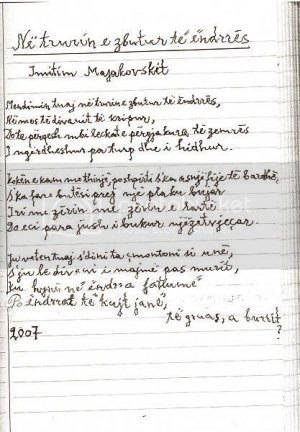 Në trurin e zbutur të ëndrrës
Imitim Majakovskit
Mendimin tuaj në trurin e zbutur të ëndrrës,
Në mostë divanit të kripur,
Do të përqesh mbi leckat e përgjakura të zemrës
I ngërdheshur pa turp dhe i hidhur.
Kokën e kam me thinja, por shpirti s'ka asnjë fije të bardhë,
S'ka fare butësi prej një plaku bujar
I ri me zërin më zërin e lartë
Do eci para jush i bukur njëzetvjeçar.
Ju veten tuaj s'dini ta çmontoni si unë,
S'ju le divani i majmë pas murit,
Ju hyni në ëndrra fatlumë
Po ëndrrat të kujt janë,
të gruas, a burrit
?
2007
photobucket